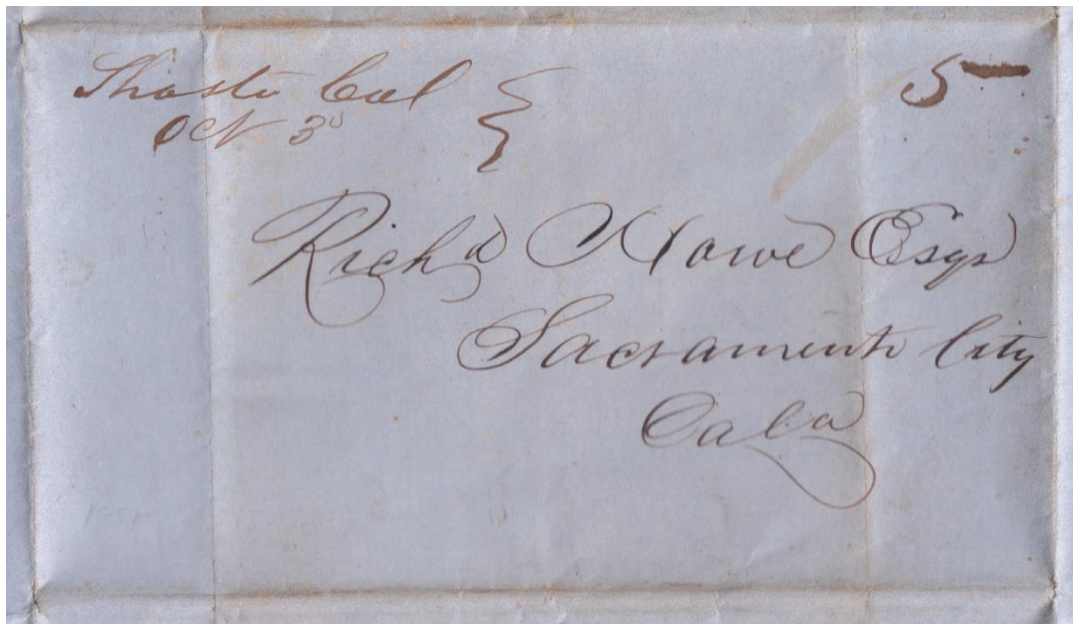 Shasta Cal
Oct 3d
5
Richd Howe Esqr
Sacramento City
Cala